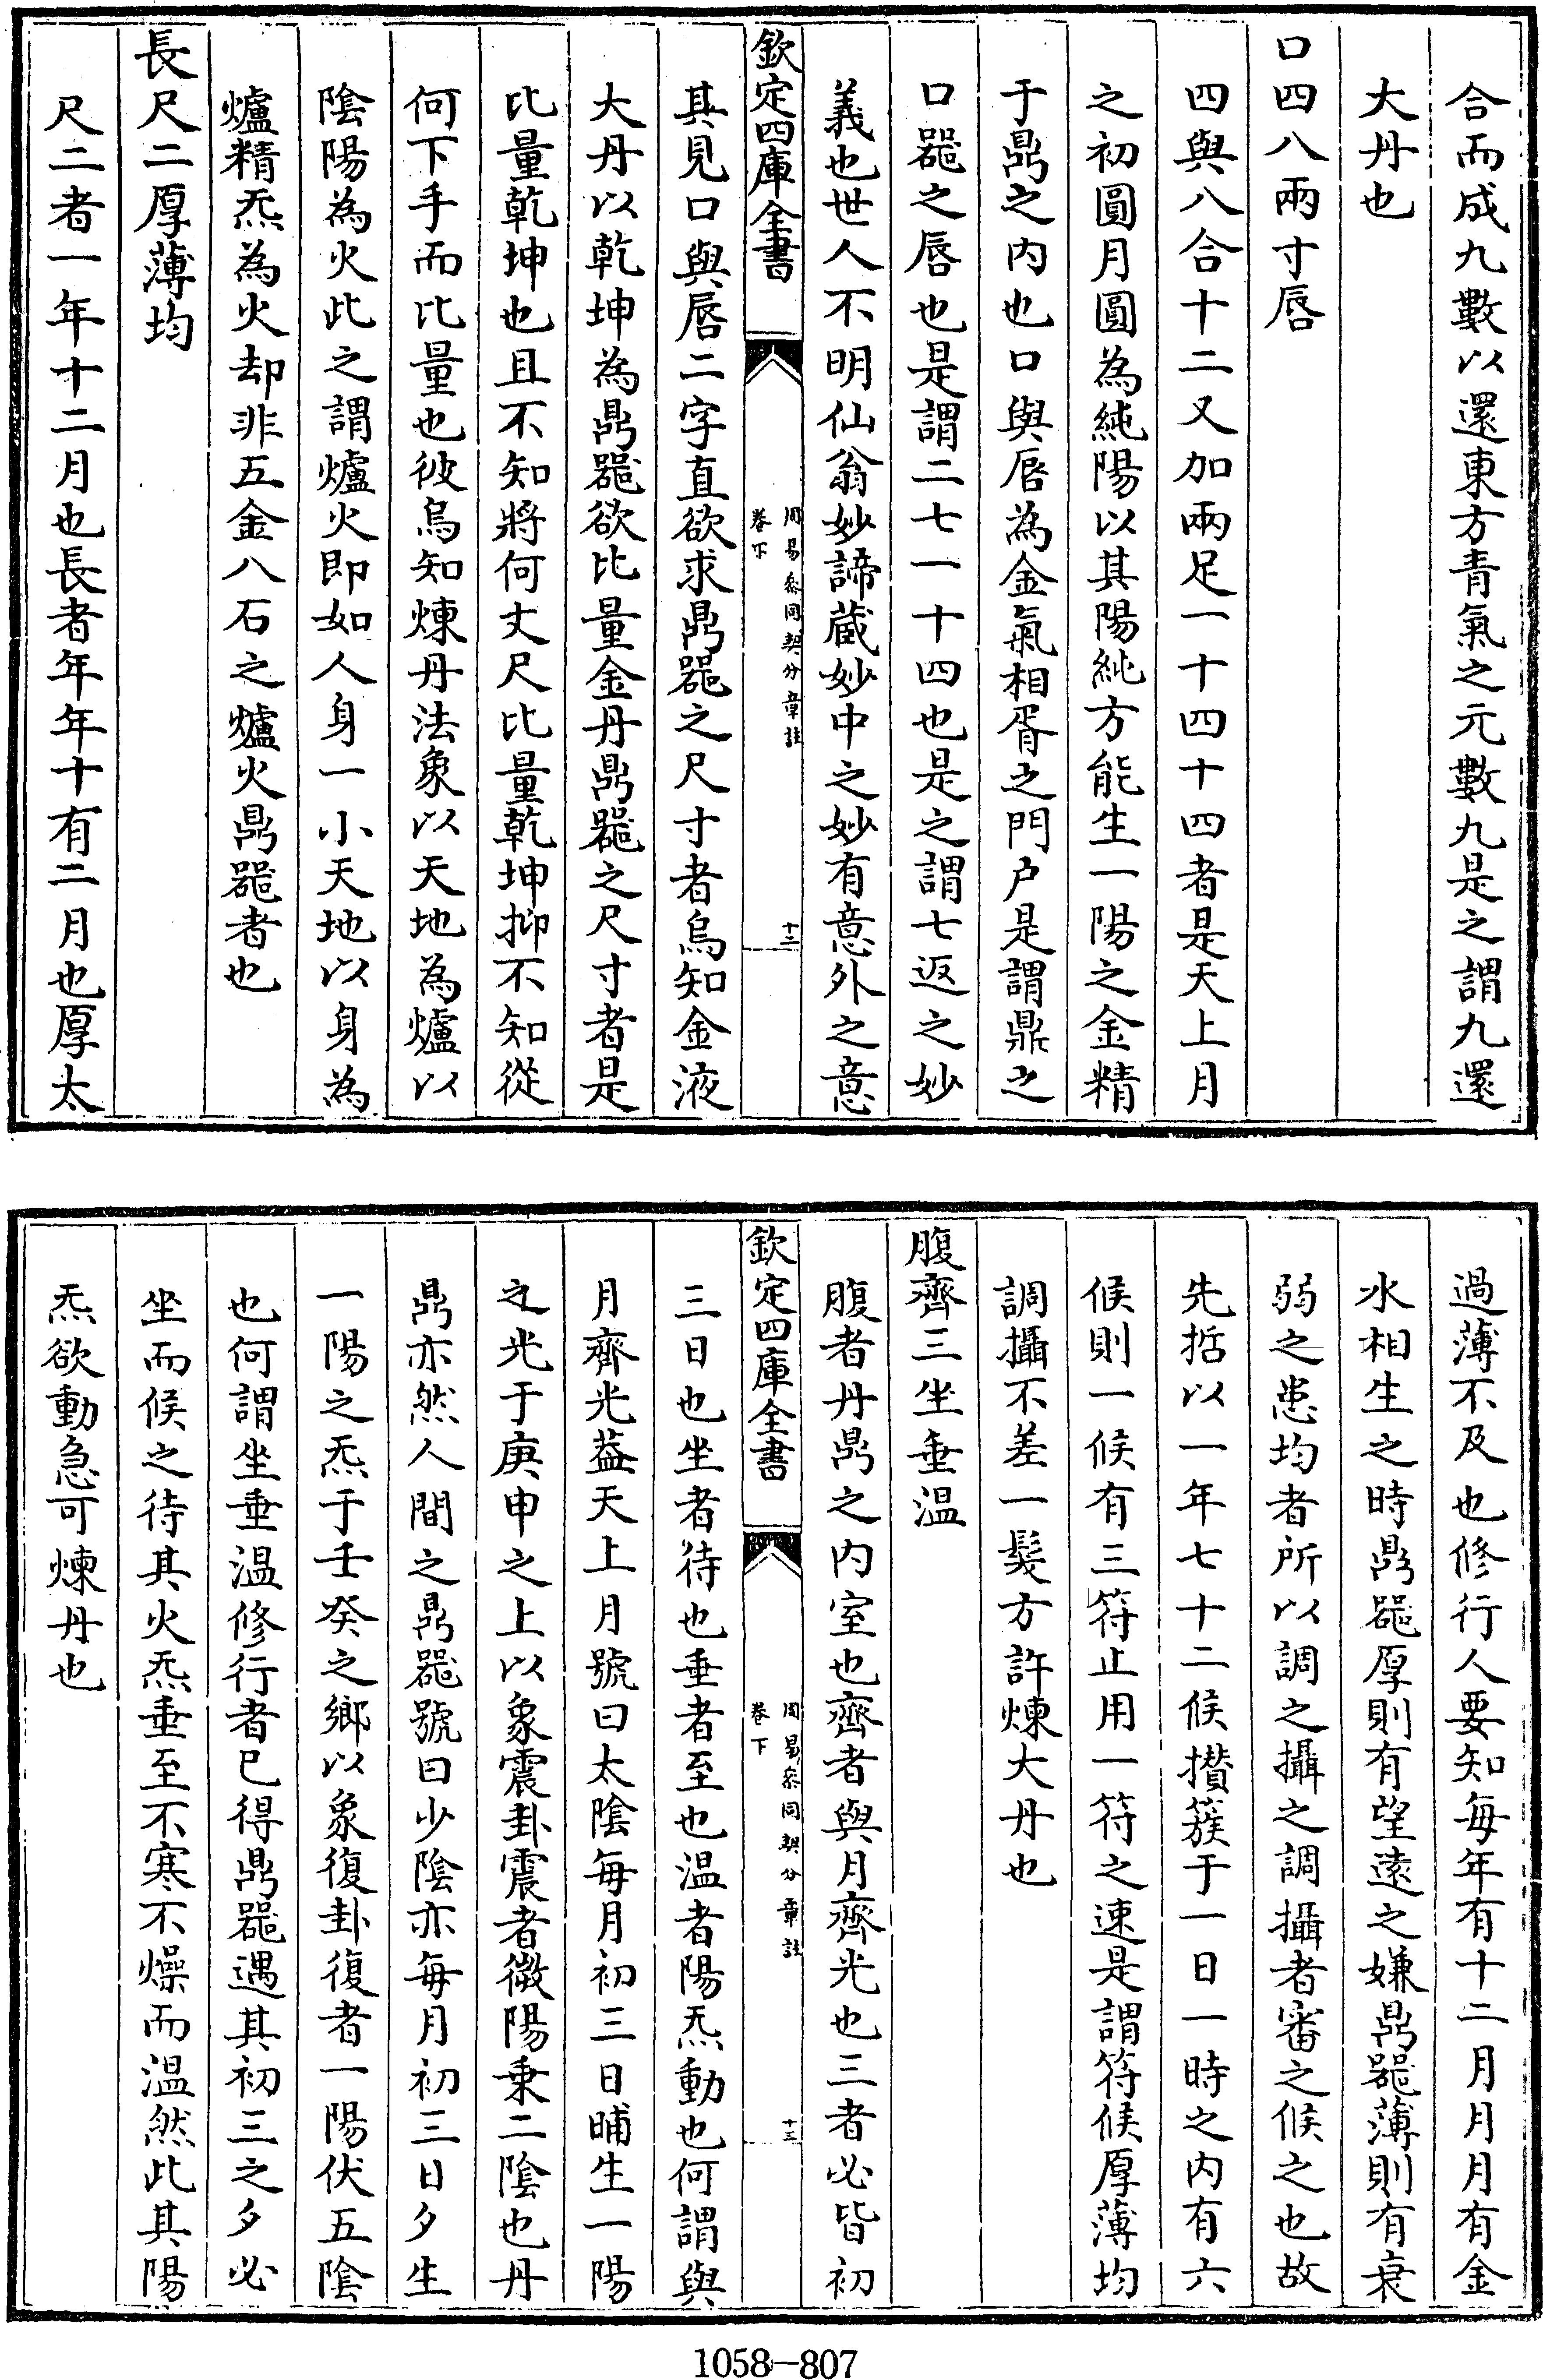 合而成九數以還東方青氣之元數九是之謂九還
大丹也
口四八兩寸唇
四與八合十二又加兩足一十四十四者是天上月
之初圓月圓為純陽以其陽純方能生一陽之金精
于鼎之内也口與唇為金氣相胥之門户是謂鼎之
口器之唇也是謂二七一十四也是之謂七返之妙
義也世人不明仙翁妙諦蔵妙中之妙有意外之意
欽定四庫全書
周易叅同契分章註
卷下
十二
其見口與唇二字直欲求鼎器之尺寸者烏知金液
大丹以乾坤為鼎器欲比量金丹鼎器之尺寸者是
比量乾坤也且不知將何丈尺比量乾坤抑不知從
何下手而比量也彼烏知煉丹法象以天地為爐以
陰陽為火此之謂爐火即如人身一小天地以身為
爐精炁為火却非五金八石之爐火鼎器者也
長尺二厚薄均
尺二者一年十二月也長者年年十有二月也厚太
過薄不及也修行人要知每年有十二月月月有金
水相生之時鼎器厚則有望遠之嫌鼎器薄則有衰
弱之患均者所以調之攝之調攝者審之候之也故
先哲以一年七十二候攅簇于一日一時之内有六
候則一候有三符止用一符之速是謂符候厚薄均
調攝不差一髮方許煉大丹也
腹齊三坐垂温
腹者丹鼎之内室也齊者與月齊光也三者必皆初
欽定四庫全書
周易叅同契分章註
卷下
十三
三日也坐者待也垂者至也温者陽炁動也何謂與
月齊光葢天上月號曰太陰每月初三日晡生一陽
之光于庚申之上以象震卦震者微陽乗二陰也丹
鼎亦然人間之鼎器號曰少陰亦每月初三日夕生
一陽之炁于壬癸之鄉以象復卦復者一陽伏五陰
也何謂坐垂温修行者已得鼎器遇其初三之夕必
坐而候之待其火炁垂至不寒不燥而温然此其陽
炁欲動急可煉丹也
1058-807